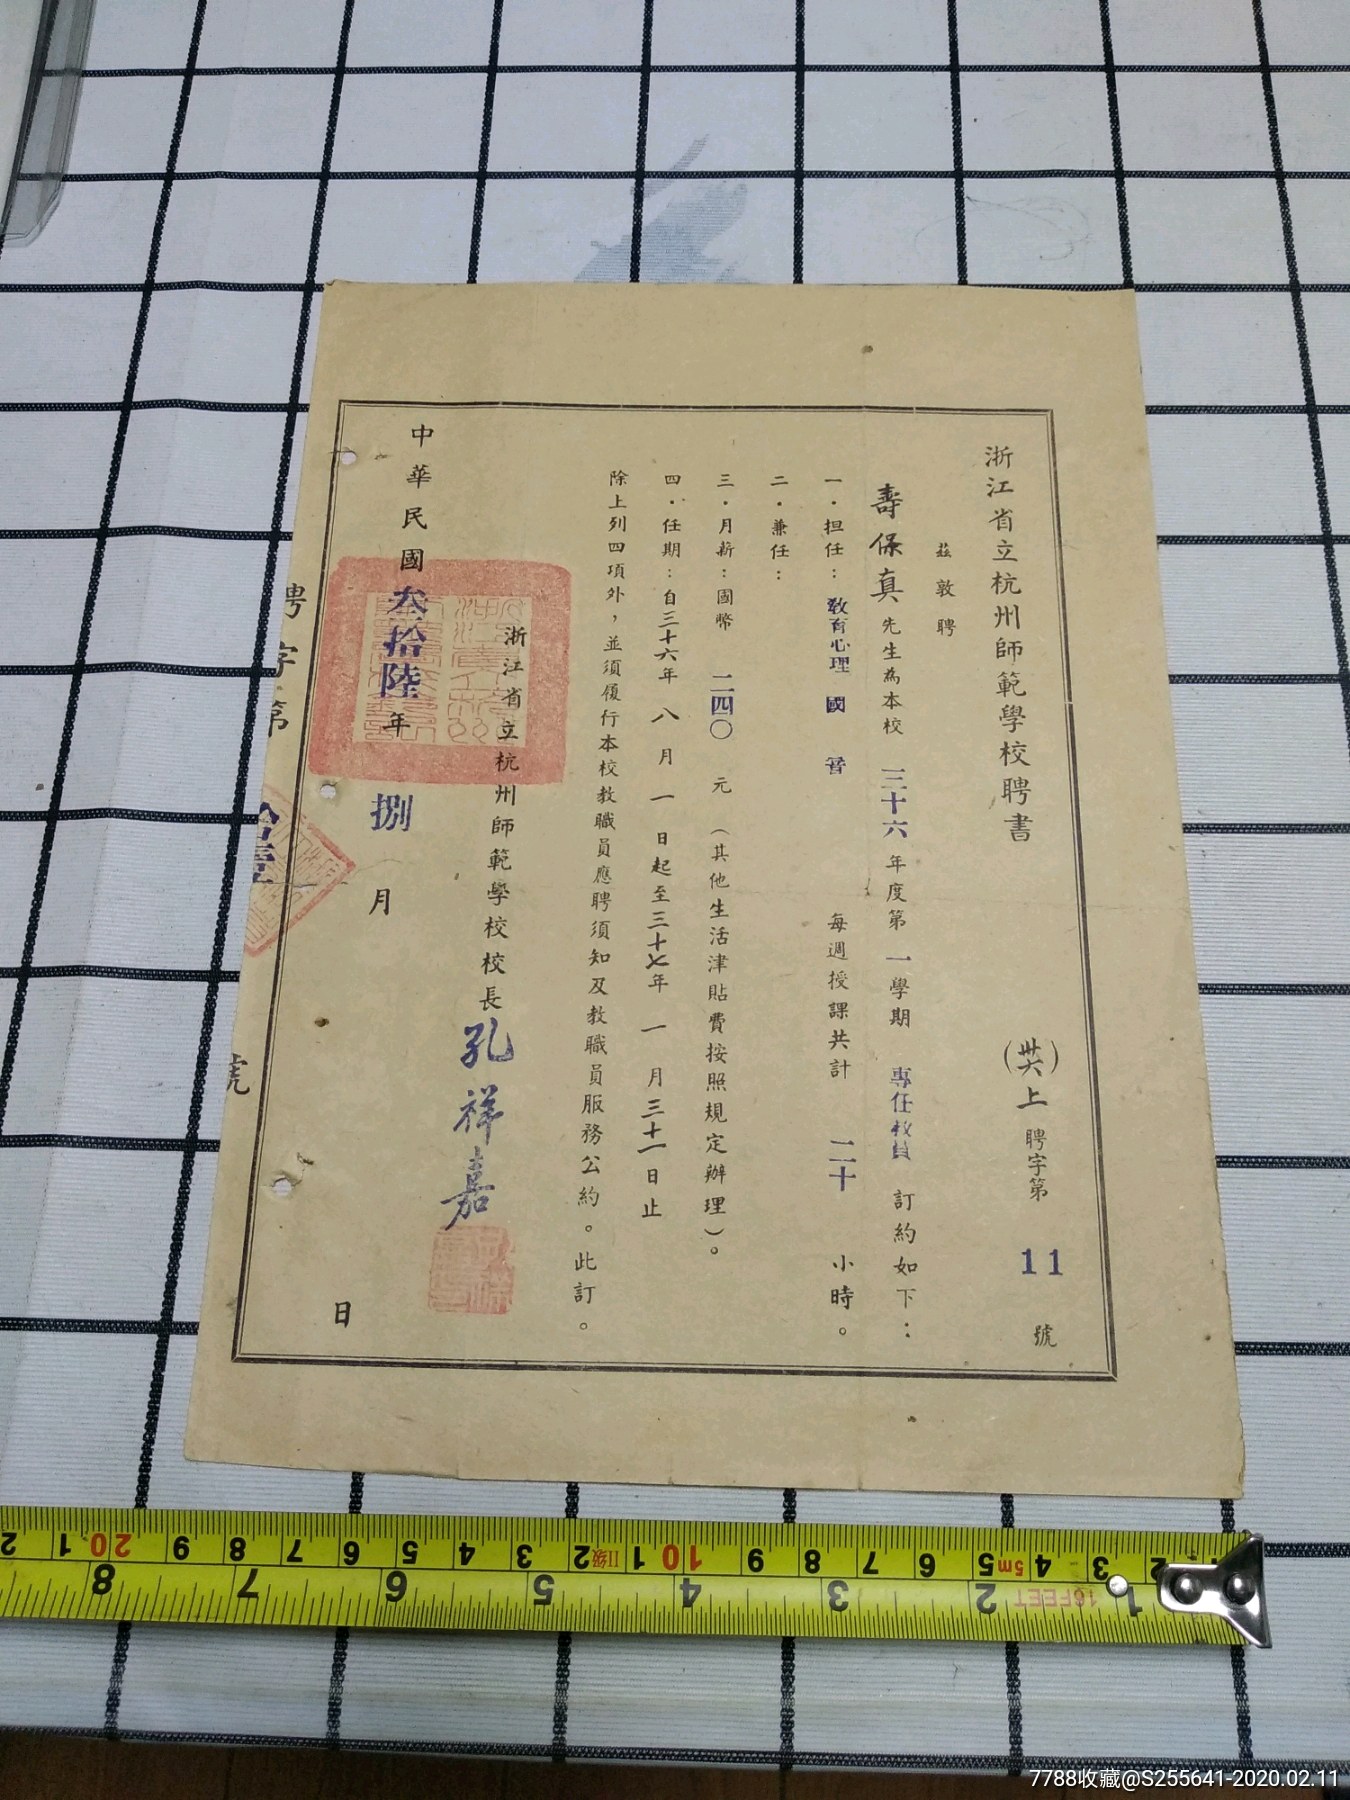 浙江省立杭州師範學校聘書
(卅六)上聘字第11號
茲敦聘
壽保真先生為本校三十六年度第一學期專任教員訂約如下：
一．担任：教育心理 國音 每週授課共計二十小時。
二．兼任：
三．月薪：國幣二四〇元（其他生活津貼費按照規定辦理）。
四．任期：自三十六年八月一日起至三十七年一月三十一日止
除上列四項外，並須履行本校教職員應聘須知及教職員服務公約。此訂。
浙江省立杭州師範學校校長孔祥嘉
中華民國叁拾陸年捌月日
聘字第拾壹號
20 1 9 8 7 6 5 4 3 2 1 10 9 8 7 6 5 4 3 2
II級
5m
16FEET
8 7 6 5 4 3 2 1
7788收藏@S255641-2020.02.11